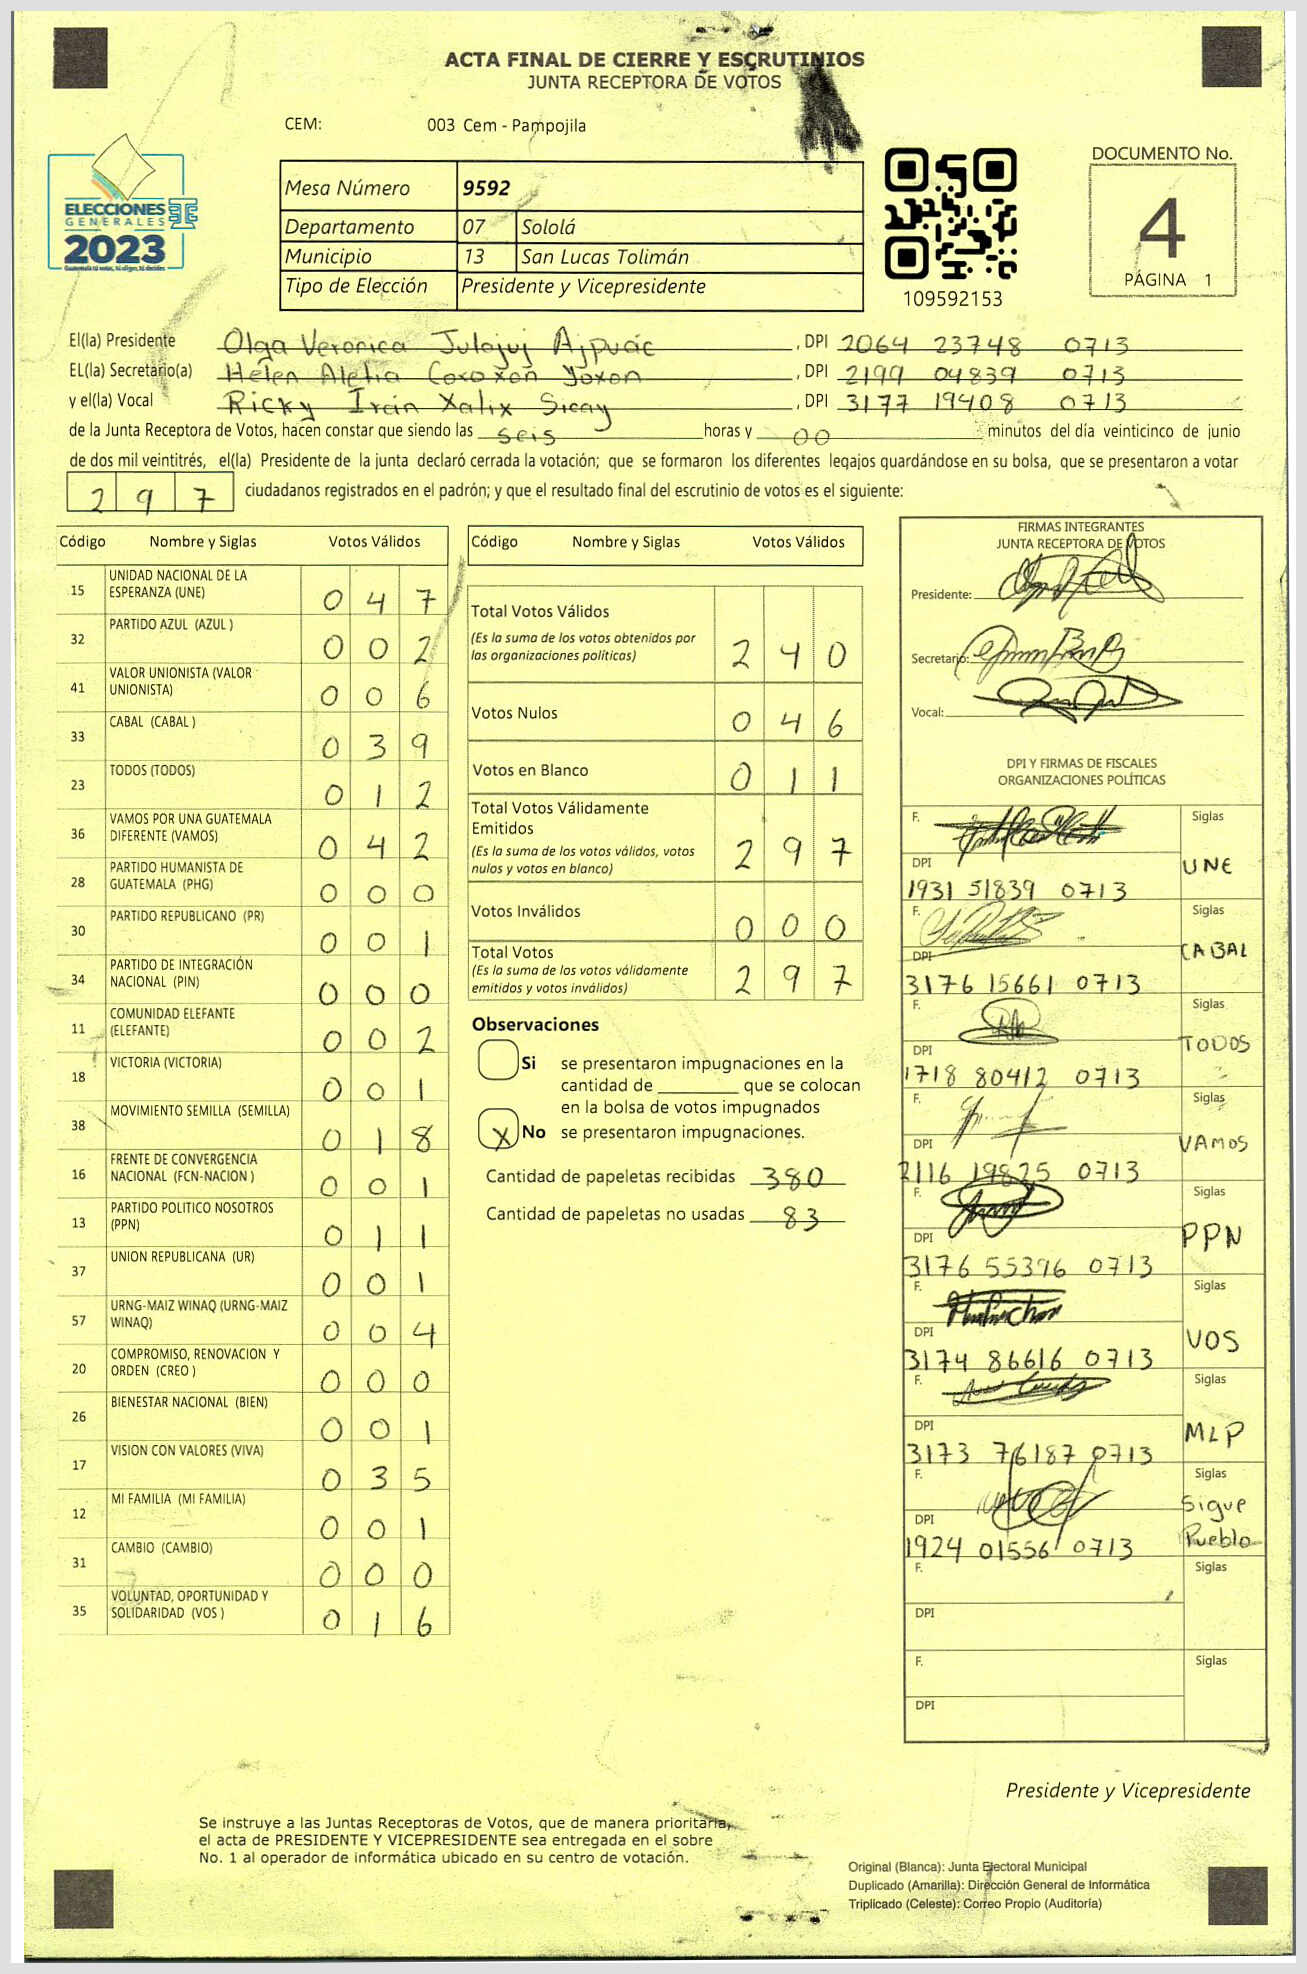 ACTA FINAL DE CIERRE Y ESCRUTINIOS
JUNTA RECEPTORA DE VOTOS
CEM: 003 Cem - Pampojila
ELECCIONES
GENERALES
2023
Mesa Número 9592
Departamento 07 Sololá
Municipio 13 San Lucas Tolimán
Tipo de Elección Presidente y Vicepresidente
109592153
DOCUMENTO No.
4
PÁGINA 1
El(la) Presidente Olga Veronica Julajuj Ajpuác, DPI 2064 23748 0713
EL(la) Secretario(a) Helen Aletia Cocoxon Yoxon, DPI 2199 04839 0713
y el(la) Vocal Ricky Iván Xalix Sicay, DPI 3177 19408 0713
de la Junta Receptora de Votos, hacen constar que siendo las seis horas y 00 minutos del día veinticinco de junio
de dos mil veintitrés, el(la) Presidente de la junta declaró cerrada la votación; que se formaron los diferentes legajos guardándose en su bolsa, que se presentaron a votar
2 9 7 ciudadanos registrados en el padrón; y que el resultado final del escrutinio de votos es el siguiente:
Código Nombre y Siglas Votos Válidos
15 UNIDAD NACIONAL DE LA ESPERANZA (UNE) 0 4 7
32 PARTIDO AZUL (AZUL ) 0 0 2
41 VALOR UNIONISTA (VALOR UNIONISTA) 0 0 6
33 CABAL (CABAL ) 0 3 9
23 TODOS (TODOS) 0 1 2
36 VAMOS POR UNA GUATEMALA DIFERENTE (VAMOS) 0 4 2
28 PARTIDO HUMANISTA DE GUATEMALA (PHG) 0 0 0
30 PARTIDO REPUBLICANO (PR) 0 0 1
34 PARTIDO DE INTEGRACIÓN NACIONAL (PIN) 0 0 0
11 COMUNIDAD ELEFANTE (ELEFANTE) 0 0 2
18 VICTORIA (VICTORIA) 0 0 1
38 MOVIMIENTO SEMILLA (SEMILLA) 0 1 8
16 FRENTE DE CONVERGENCIA NACIONAL (FCN-NACION ) 0 0 1
13 PARTIDO POLITICO NOSOTROS (PPN) 0 1 1
37 UNION REPUBLICANA (UR) 0 0 1
57 URNG-MAIZ WINAQ (URNG-MAIZ WINAQ) 0 0 4
20 COMPROMISO, RENOVACION Y ORDEN (CREO ) 0 0 0
26 BIENESTAR NACIONAL (BIEN) 0 0 1
17 VISION CON VALORES (VIVA) 0 3 5
12 MI FAMILIA (MI FAMILIA) 0 0 1
31 CAMBIO (CAMBIO) 0 0 0
35 VOLUNTAD, OPORTUNIDAD Y SOLIDARIDAD (VOS ) 0 1 6
Código Nombre y Siglas Votos Válidos
Total Votos Válidos 2 4 0
(Es la suma de los votos obtenidos por
las organizaciones políticas)
Votos Nulos 0 4 6
Votos en Blanco 0 1 1
Total Votos Válidamente
Emitidos 2 9 7
(Es la suma de los votos válidos, votos
nulos y votos en blanco)
Votos Inválidos 0 0 0
Total Votos 2 9 7
(Es la suma de los votos válidamente
emitidos y votos inválidos)
Observaciones
Si se presentaron impugnaciones en la
cantidad de ________ que se colocan
en la bolsa de votos impugnados
X No se presentaron impugnaciones.
Cantidad de papeletas recibidas 380
Cantidad de papeletas no usadas 83
FIRMAS INTEGRANTES
JUNTA RECEPTORA DE VOTOS
Presidente:
Secretario:
Vocal:
DPI Y FIRMAS DE FISCALES
ORGANIZACIONES POLÍTICAS
F. Siglas
DPI UNE
1931 51839 0713
F. Siglas
DPI CABAL
3176 15661 0713
F. Siglas
DPI TODOS
1718 80412 0713
F. Siglas
DPI VAMOS
2116 19825 0713
F. Siglas
DPI PPN
3176 55396 0713
F. Siglas
DPI VOS
3174 86616 0713
F. Siglas
DPI MLP
3173 76187 0713
F. Siglas
DPI Sigue Pueblo
1924 01556 0713
F. Siglas
DPI
F. Siglas
DPI
Presidente y Vicepresidente
Se instruye a las Juntas Receptoras de Votos, que de manera prioritaria,
el acta de PRESIDENTE Y VICEPRESIDENTE sea entregada en el sobre
No. 1 al operador de informática ubicado en su centro de votación.
Original (Blanca): Junta Electoral Municipal
Duplicado (Amarilla): Dirección General de Informática
Triplicado (Celeste): Correo Propio (Auditoría)